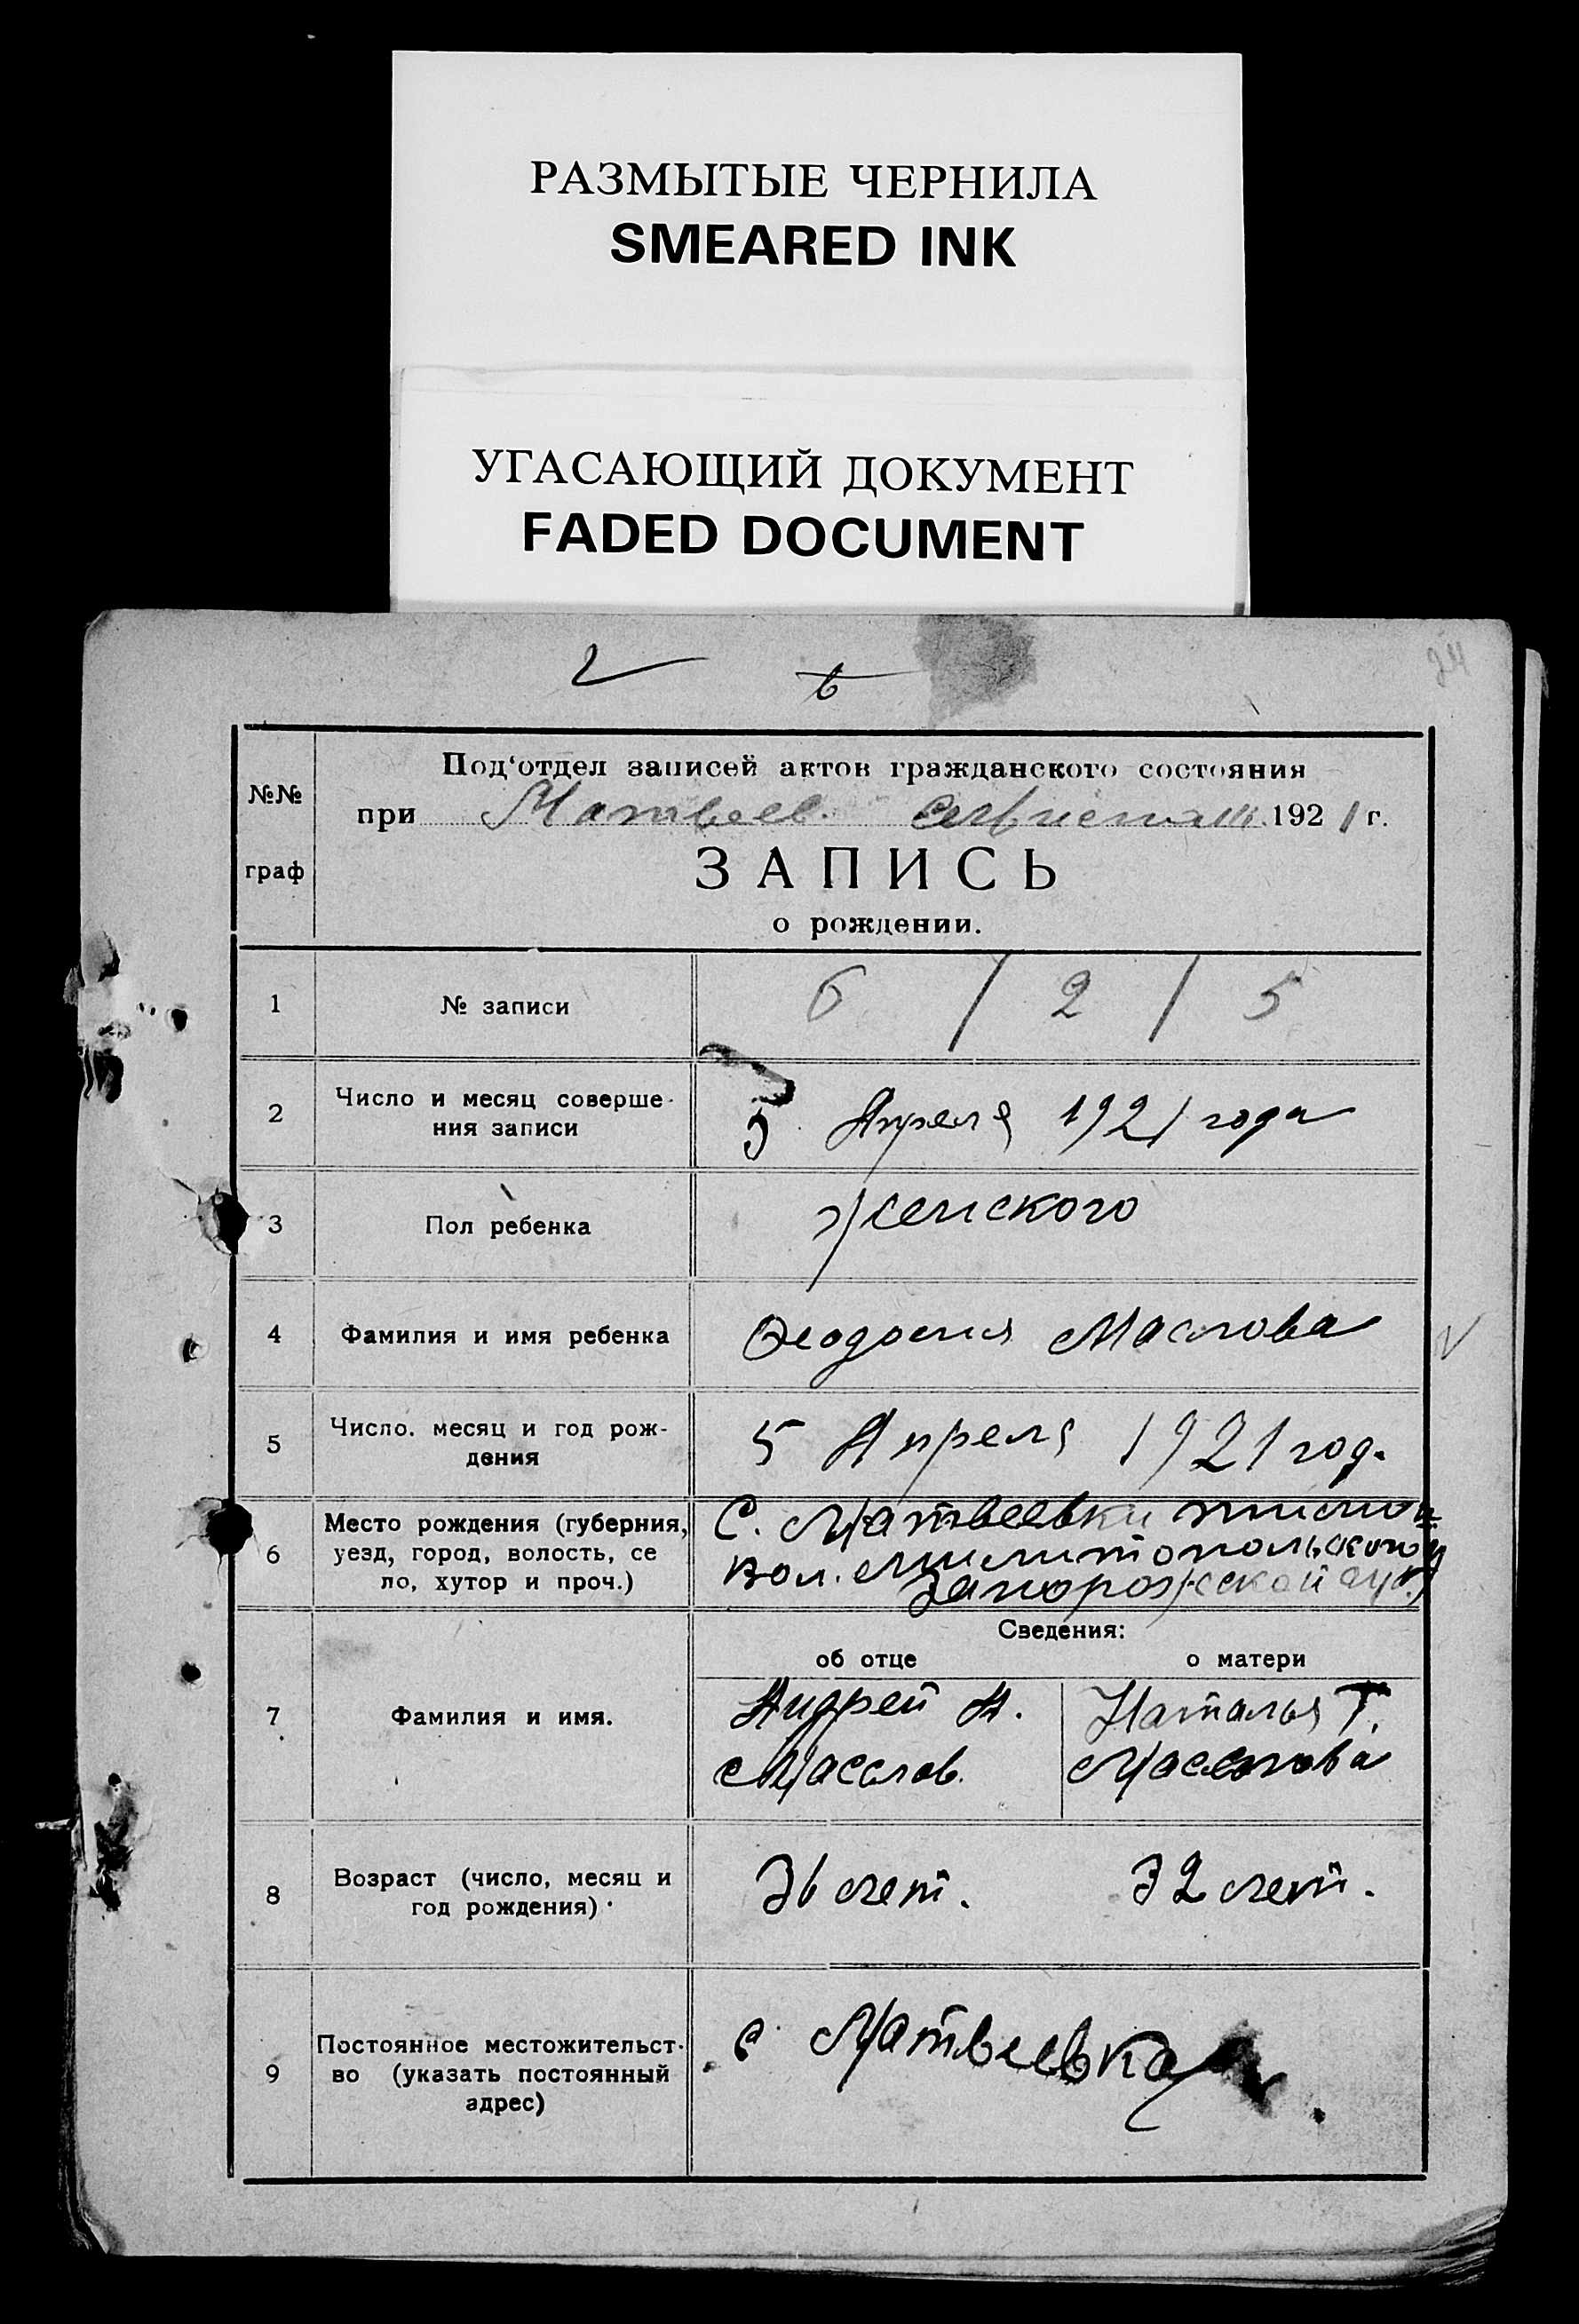 РАЗМЫТЫЕ ЧЕРНИЛА
SMEARED INK
УГАСАЮЩИЙ ДОКУМЕНТ
FADED DOCUMENT
24
№№ граф
Под‘отдел записей актов гражданского состояния
при Матвеев. 1921 г.
ЗАПИСЬ
о рождении.
1 № записи 6 / 2 / 5
2 Число и месяц соверше-
ния записи
5 Апреля 1921 года
3 Пол ребенка Женского
4 Фамилия и имя ребенка Феодосия Маслова
5 Число. месяц и год рож-
дения
5 Апреля 1921 год.
6 Место рождения (губерния,
уезд, город, волость, се
ло, хутор и проч.)
С. Матвеевки
вол. Милитопольского у
Запорожской губ.
Сведения:
об отце о матери
7 Фамилия и имя.
Андрей А. Наталья Т.
Масслов. Масслова
8 Возраст (число, месяц и
год рождения)
36 лет. 32 лет.
9 Постоянное местожительст-
во (указать постоянный
адрес)
с Матвеевка